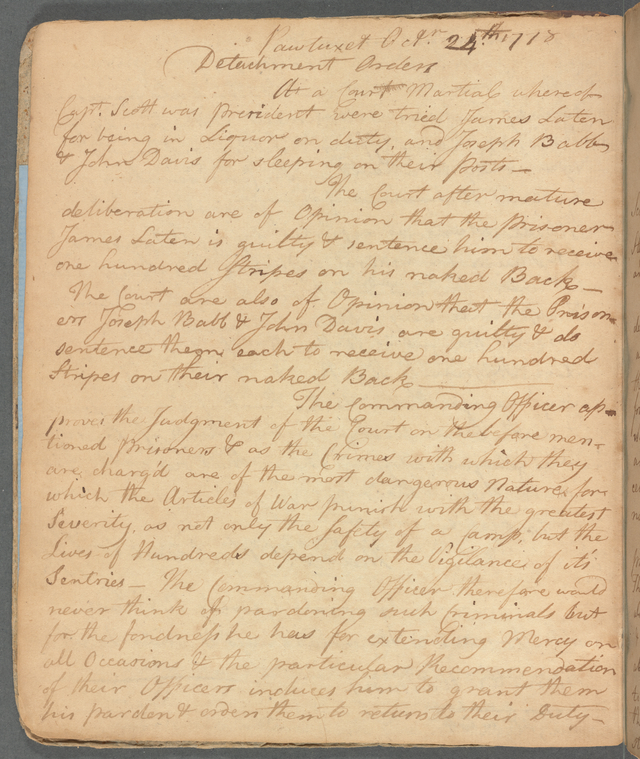 Pawtuxet Octr. 24th 1778
Detachment Orders
At a Court Martial whereof
Capt. Scott was president were tried James Laten
for being in Liquor on duty, and Joseph Babb
& John Davis for sleeping on their posts —
The Court after mature
deliberation are of Opinion that the prisoner
James Laten is guilty & sentence him to receive
one hundred Stripes on his naked Back —
The Court are also of Opinion that the Prison=
ers Joseph Babb & John Davis are guilty & do
sentence them each to receive one hundred
Stripes on their naked Back
The Commanding Officer ap=
proves the Judgment of the Court on the before men=
tioned prisoners & as the Crimes with which they
are charg'd are of the most dangerous Nature, for
which the Articles of War punish with the greatest
Severity, as not only the Safety of a camp, but the
Lives of Hundreds depend on the Vigilance of it's
Sentries — The Commanding Officer therefore would
never think of pardoning such Criminals but
for the fondness he has for extending Mercy on
all Occasions & the particular Recommendation
of their Officers induces him to grant them
his pardon & orders them to return to their Duty —